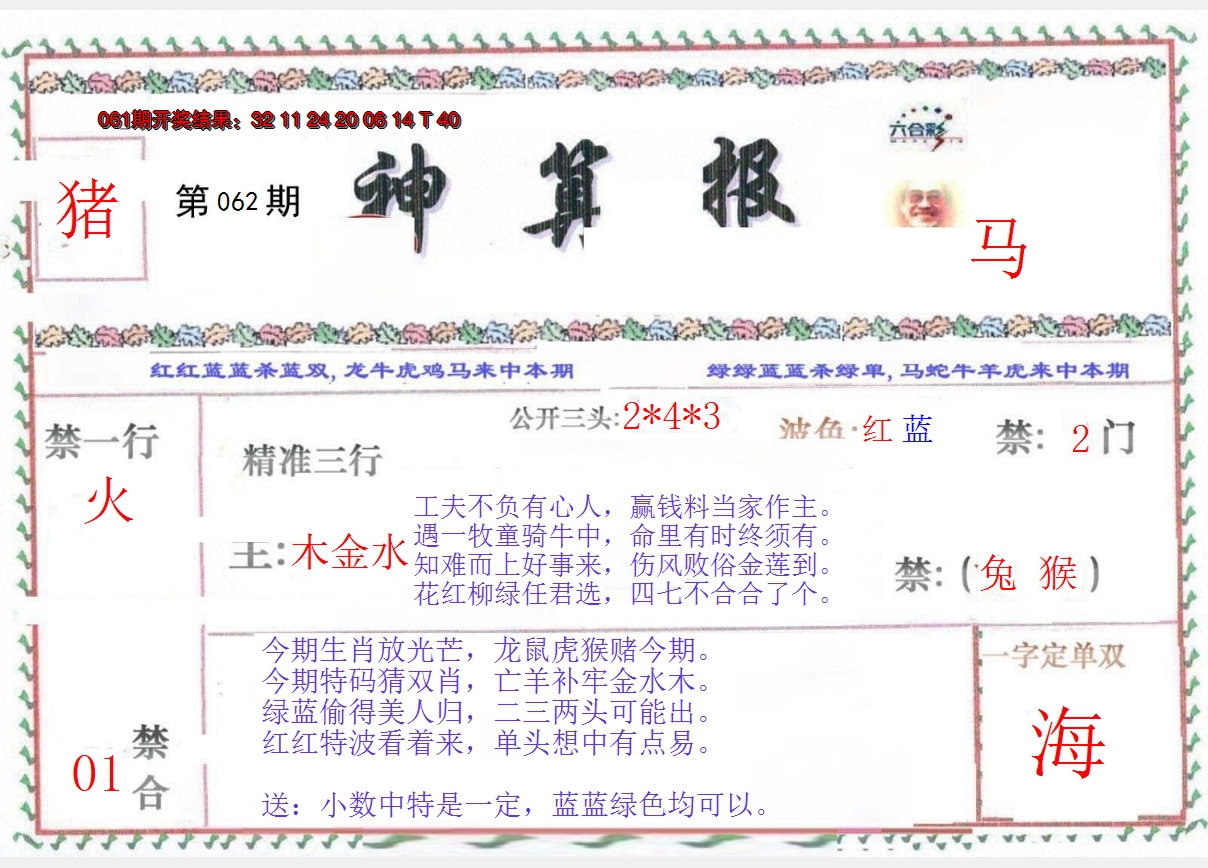 061期开奖结果：32 11 24 20 06 14 T 40
六合彩
猪
第062期
神算报
马
红红蓝蓝杀蓝双，龙牛虎鸡马来中本期
绿绿蓝蓝杀绿单，马蛇牛羊虎来中本期
公开三头:2*4*3
波色:红 蓝
禁：2门
禁一行
火
精准三行
主:木金水
工夫不负有心人，赢钱料当家作主。
遇一牧童骑牛中，命里有时终须有。
知难而上好事来，伤风败俗金莲到。
花红柳绿任君选，四七不合合了个。
禁:（兔 猴）
今期生肖放光芒，龙鼠虎猴赌今期。
今期特码猜双肖，亡羊补牢金水木。
绿蓝偷得美人归，二三两头可能出。
红红特波看着来，单头想中有点易。
送：小数中特是一定，蓝蓝绿色均可以。
01
禁合
一字定单双
海